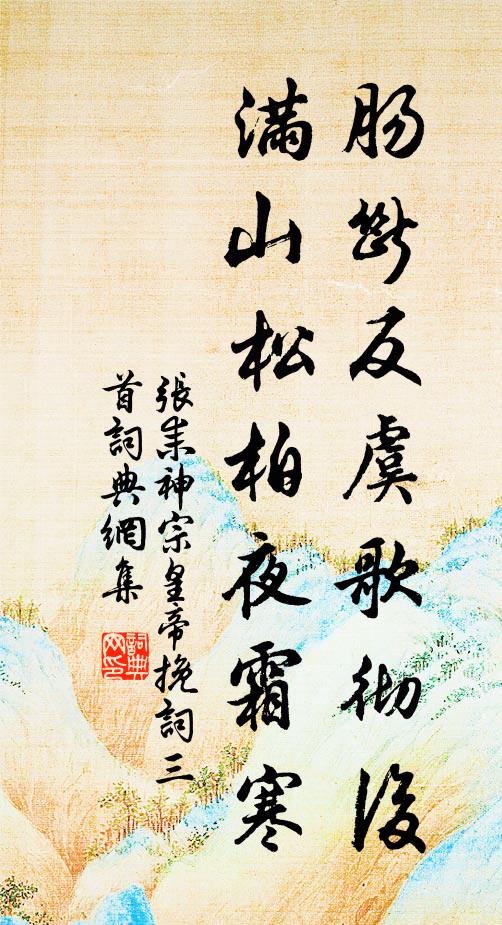 腸斷反虞歌彻後
滿山松柏夜霜寒
張耒神宗皇帝挽詞三
首詞典網集
詞典
网印